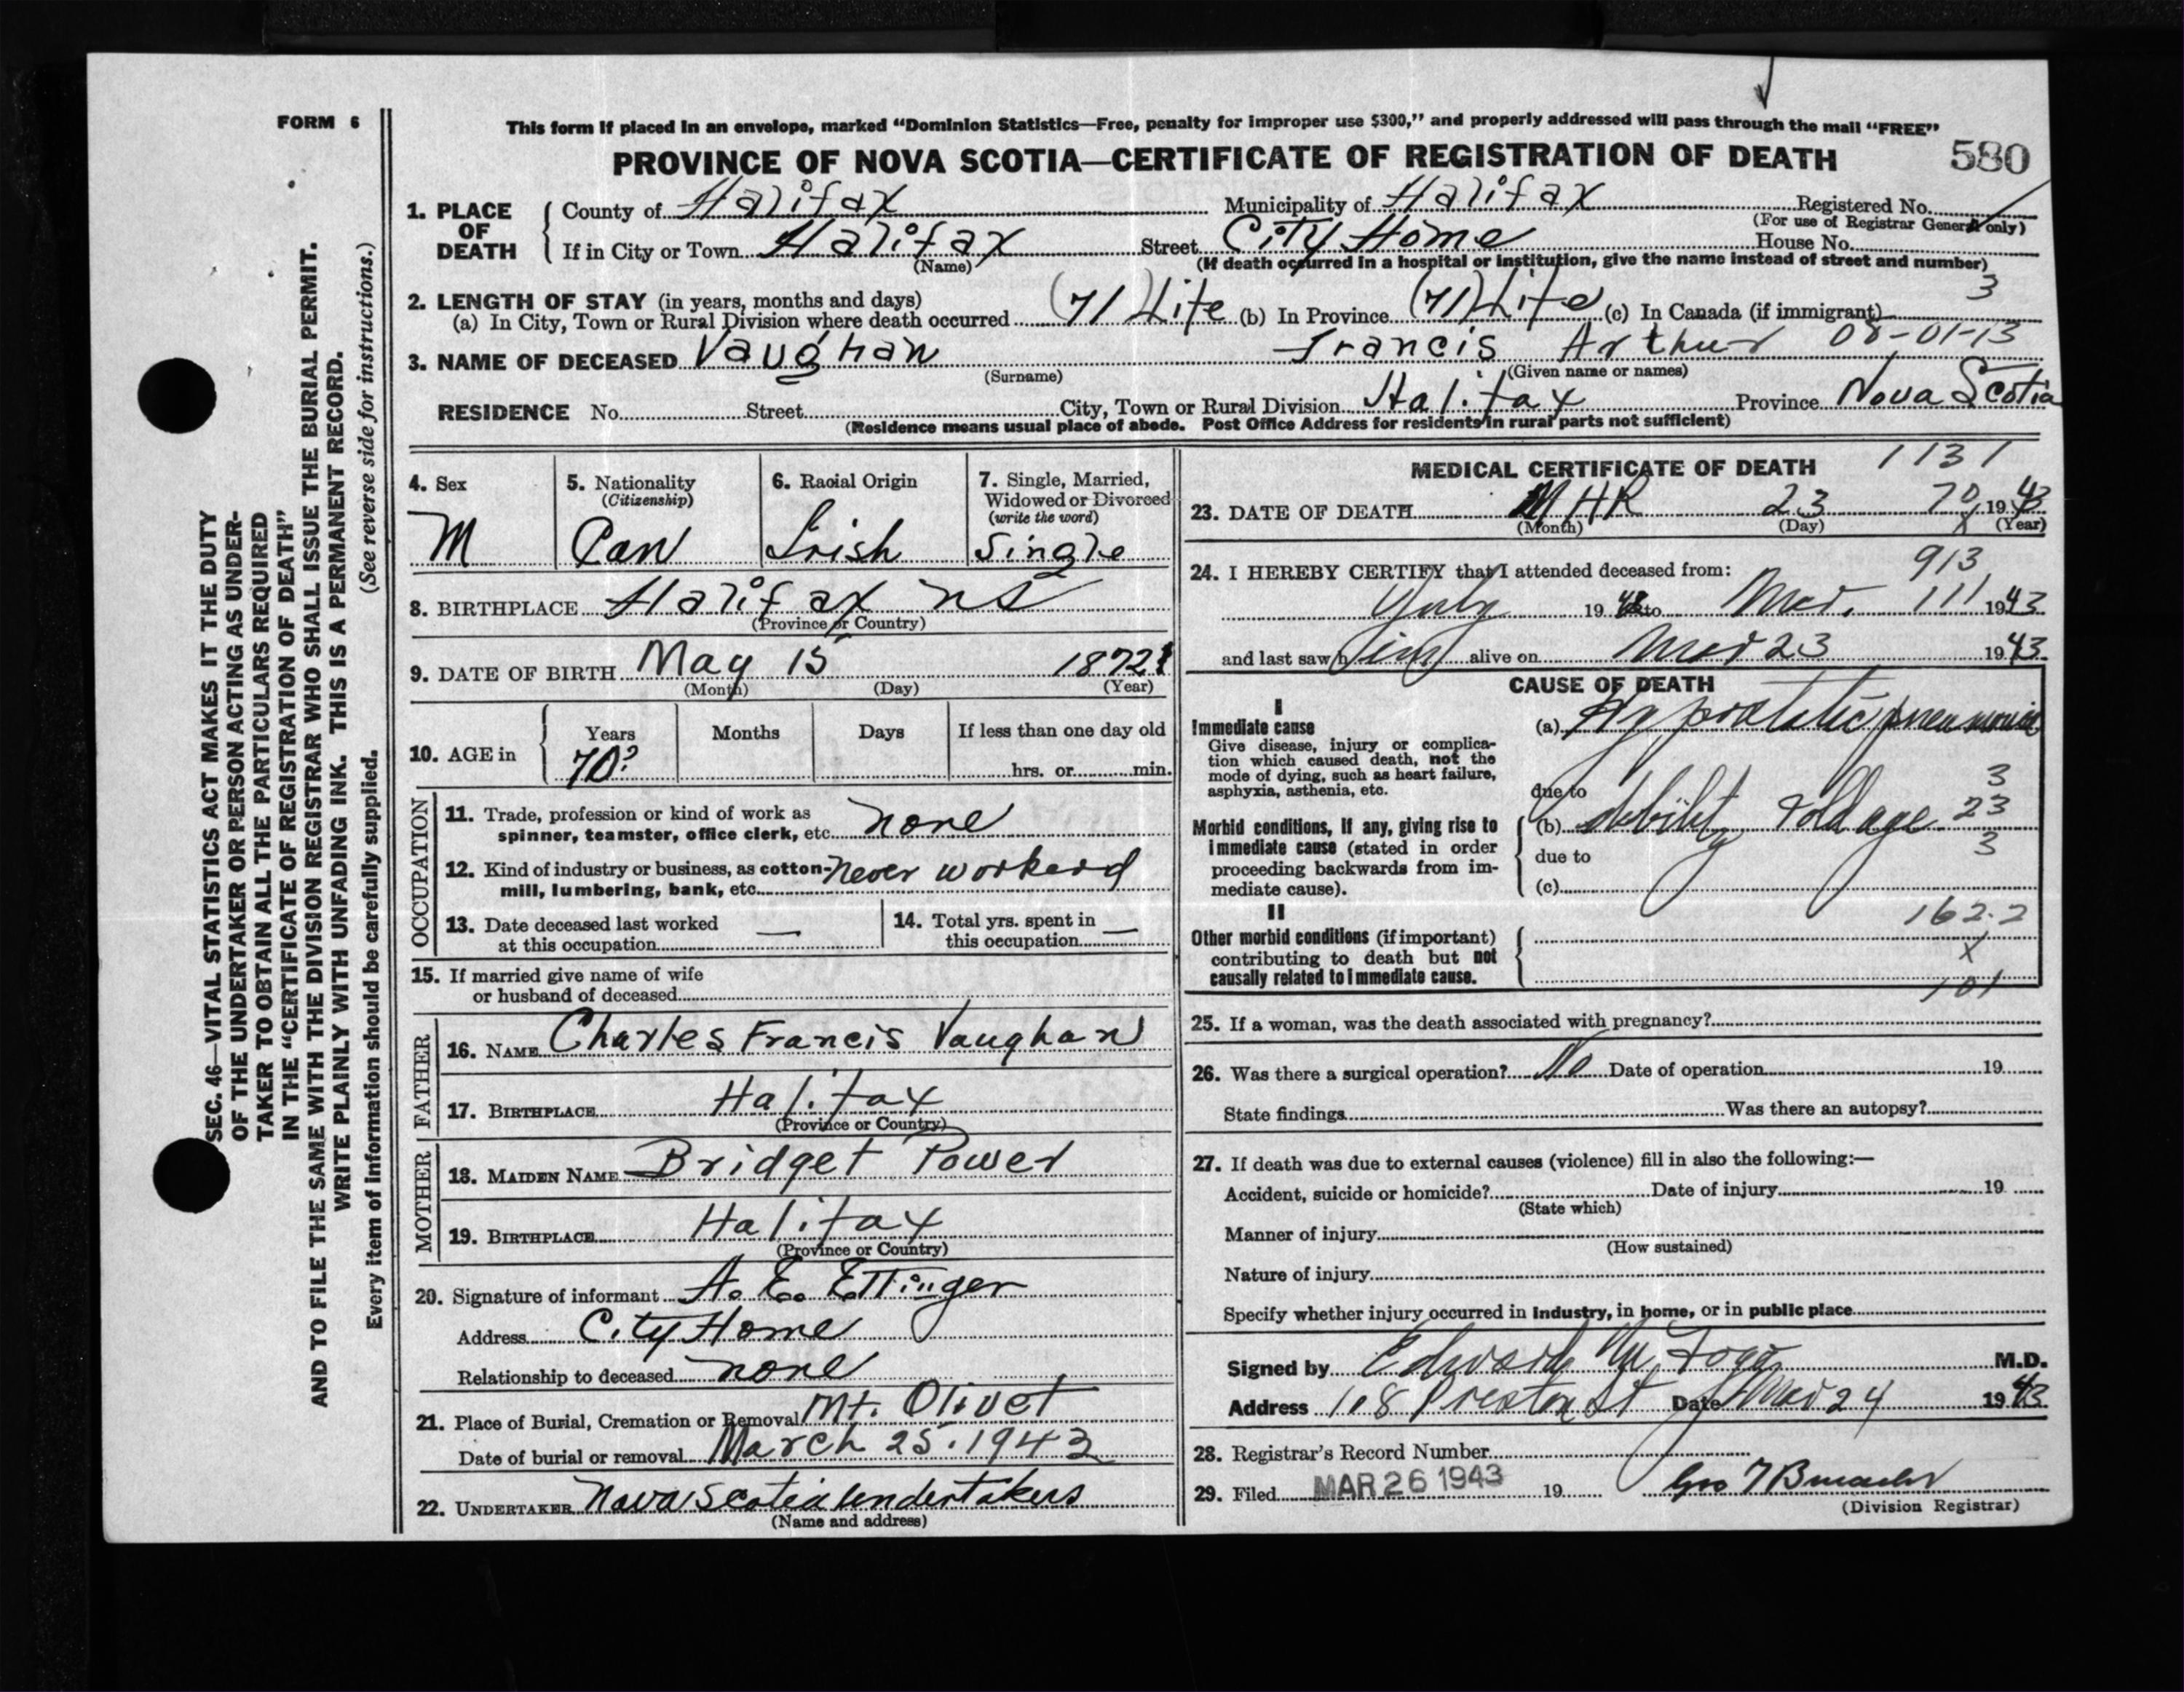 FORM 6
This form if placed in an envelope, marked "Dominion Statistics—Free, penalty for improper use $300," and properly addressed will pass through the mail "FREE"
PROVINCE OF NOVA SCOTIA—CERTIFICATE OF REGISTRATION OF DEATH 580
1. PLACE OF DEATH
County of Halifax Municipality of Halifax Registered No.
(For use of Registrar General only)
If in City or Town Halifax Street City Home House No.
(Name) (If death occurred in a hospital or institution, give the name instead of street and number)
2. LENGTH OF STAY (in years, months and days) 3
(a) In City, Town or Rural Division where death occurred (71) Life (b) In Province (71) Life (c) In Canada (if immigrant)
3. NAME OF DECEASED Vaughan Francis Arthur 08-01-13
(Surname) (Given name or names)
RESIDENCE No. Street City, Town or Rural Division Halifax Province Nova Scotia
(Residence means usual place of abode. Post Office Address for residents in rural parts not sufficient)
4. Sex
M
5. Nationality
(Citizenship)
Can
6. Racial Origin
Irish
7. Single, Married,
Widowed or Divorced
(write the word)
Single
8. BIRTHPLACE Halifax NS
(Province or Country)
9. DATE OF BIRTH May 15 1872
(Month) (Day) (Year)
10. AGE in
Years Months Days If less than one day old
70? hrs. or min.
OCCUPATION
11. Trade, profession or kind of work as
spinner, teamster, office clerk, etc. none
12. Kind of industry or business, as cotton- never workerd
mill, lumbering, bank, etc.
13. Date deceased last worked
at this occupation —
14. Total yrs. spent in
this occupation —
15. If married give name of wife
or husband of deceased
FATHER
16. NAME Charles Francis Vaughan
17. BIRTHPLACE Halifax
(Province or Country)
MOTHER
18. MAIDEN NAME Bridget Power
19. BIRTHPLACE Halifax
(Province or Country)
20. Signature of informant A. E. Ettinger
Address City Home
Relationship to deceased none
21. Place of Burial, Cremation or Removal Mt. Olivet
Date of burial or removal March 25. 1943
22. UNDERTAKER Nova Scotia Undertakers
(Name and address)
MEDICAL CERTIFICATE OF DEATH 1131
23. DATE OF DEATH MHR 23 70 1943
(Month) (Day) X (Year)
24. I HEREBY CERTIFY that I attended deceased from: 913
July 19 to Mar. 111 1943
and last saw him alive on Mar 23 1943
CAUSE OF DEATH
I
Immediate cause (a) Hypostatic pneumonia
Give disease, injury or complica-
tion which caused death, not the
mode of dying, such as heart failure,
asphyxia, asthenia, etc.
3
due to
Morbid conditions, if any, giving rise to (b) debility & old age 23
immediate cause (stated in order
proceeding backwards from im-
mediate cause).
due to 3
(c)
II 162.2
Other morbid conditions (if important)
contributing to death but not X
causally related to immediate cause.
101
25. If a woman, was the death associated with pregnancy?
26. Was there a surgical operation? No Date of operation 19
State findings Was there an autopsy?
27. If death was due to external causes (violence) fill in also the following:—
Accident, suicide or homicide? Date of injury 19
(State which)
Manner of injury
(How sustained)
Nature of injury
Specify whether injury occurred in industry, in home, or in public place
Signed by Edward M. Fogo M.D.
Address 108 Preston St Date Mar 24 1943
28. Registrar's Record Number
29. Filed MAR 26 1943 19 Geo
(Division Registrar)
SEC. 46—VITAL STATISTICS ACT MAKES IT THE DUTY
OF THE UNDERTAKER OR PERSON ACTING AS UNDER-
TAKER TO OBTAIN ALL THE PARTICULARS REQUIRED
IN THE "CERTIFICATE OF REGISTRATION OF DEATH"
AND TO FILE THE SAME WITH THE DIVISION REGISTRAR WHO SHALL ISSUE THE BURIAL PERMIT.
WRITE PLAINLY WITH UNFADING INK. THIS IS A PERMANENT RECORD.
Every item of information should be carefully supplied. (See reverse side for instructions.)